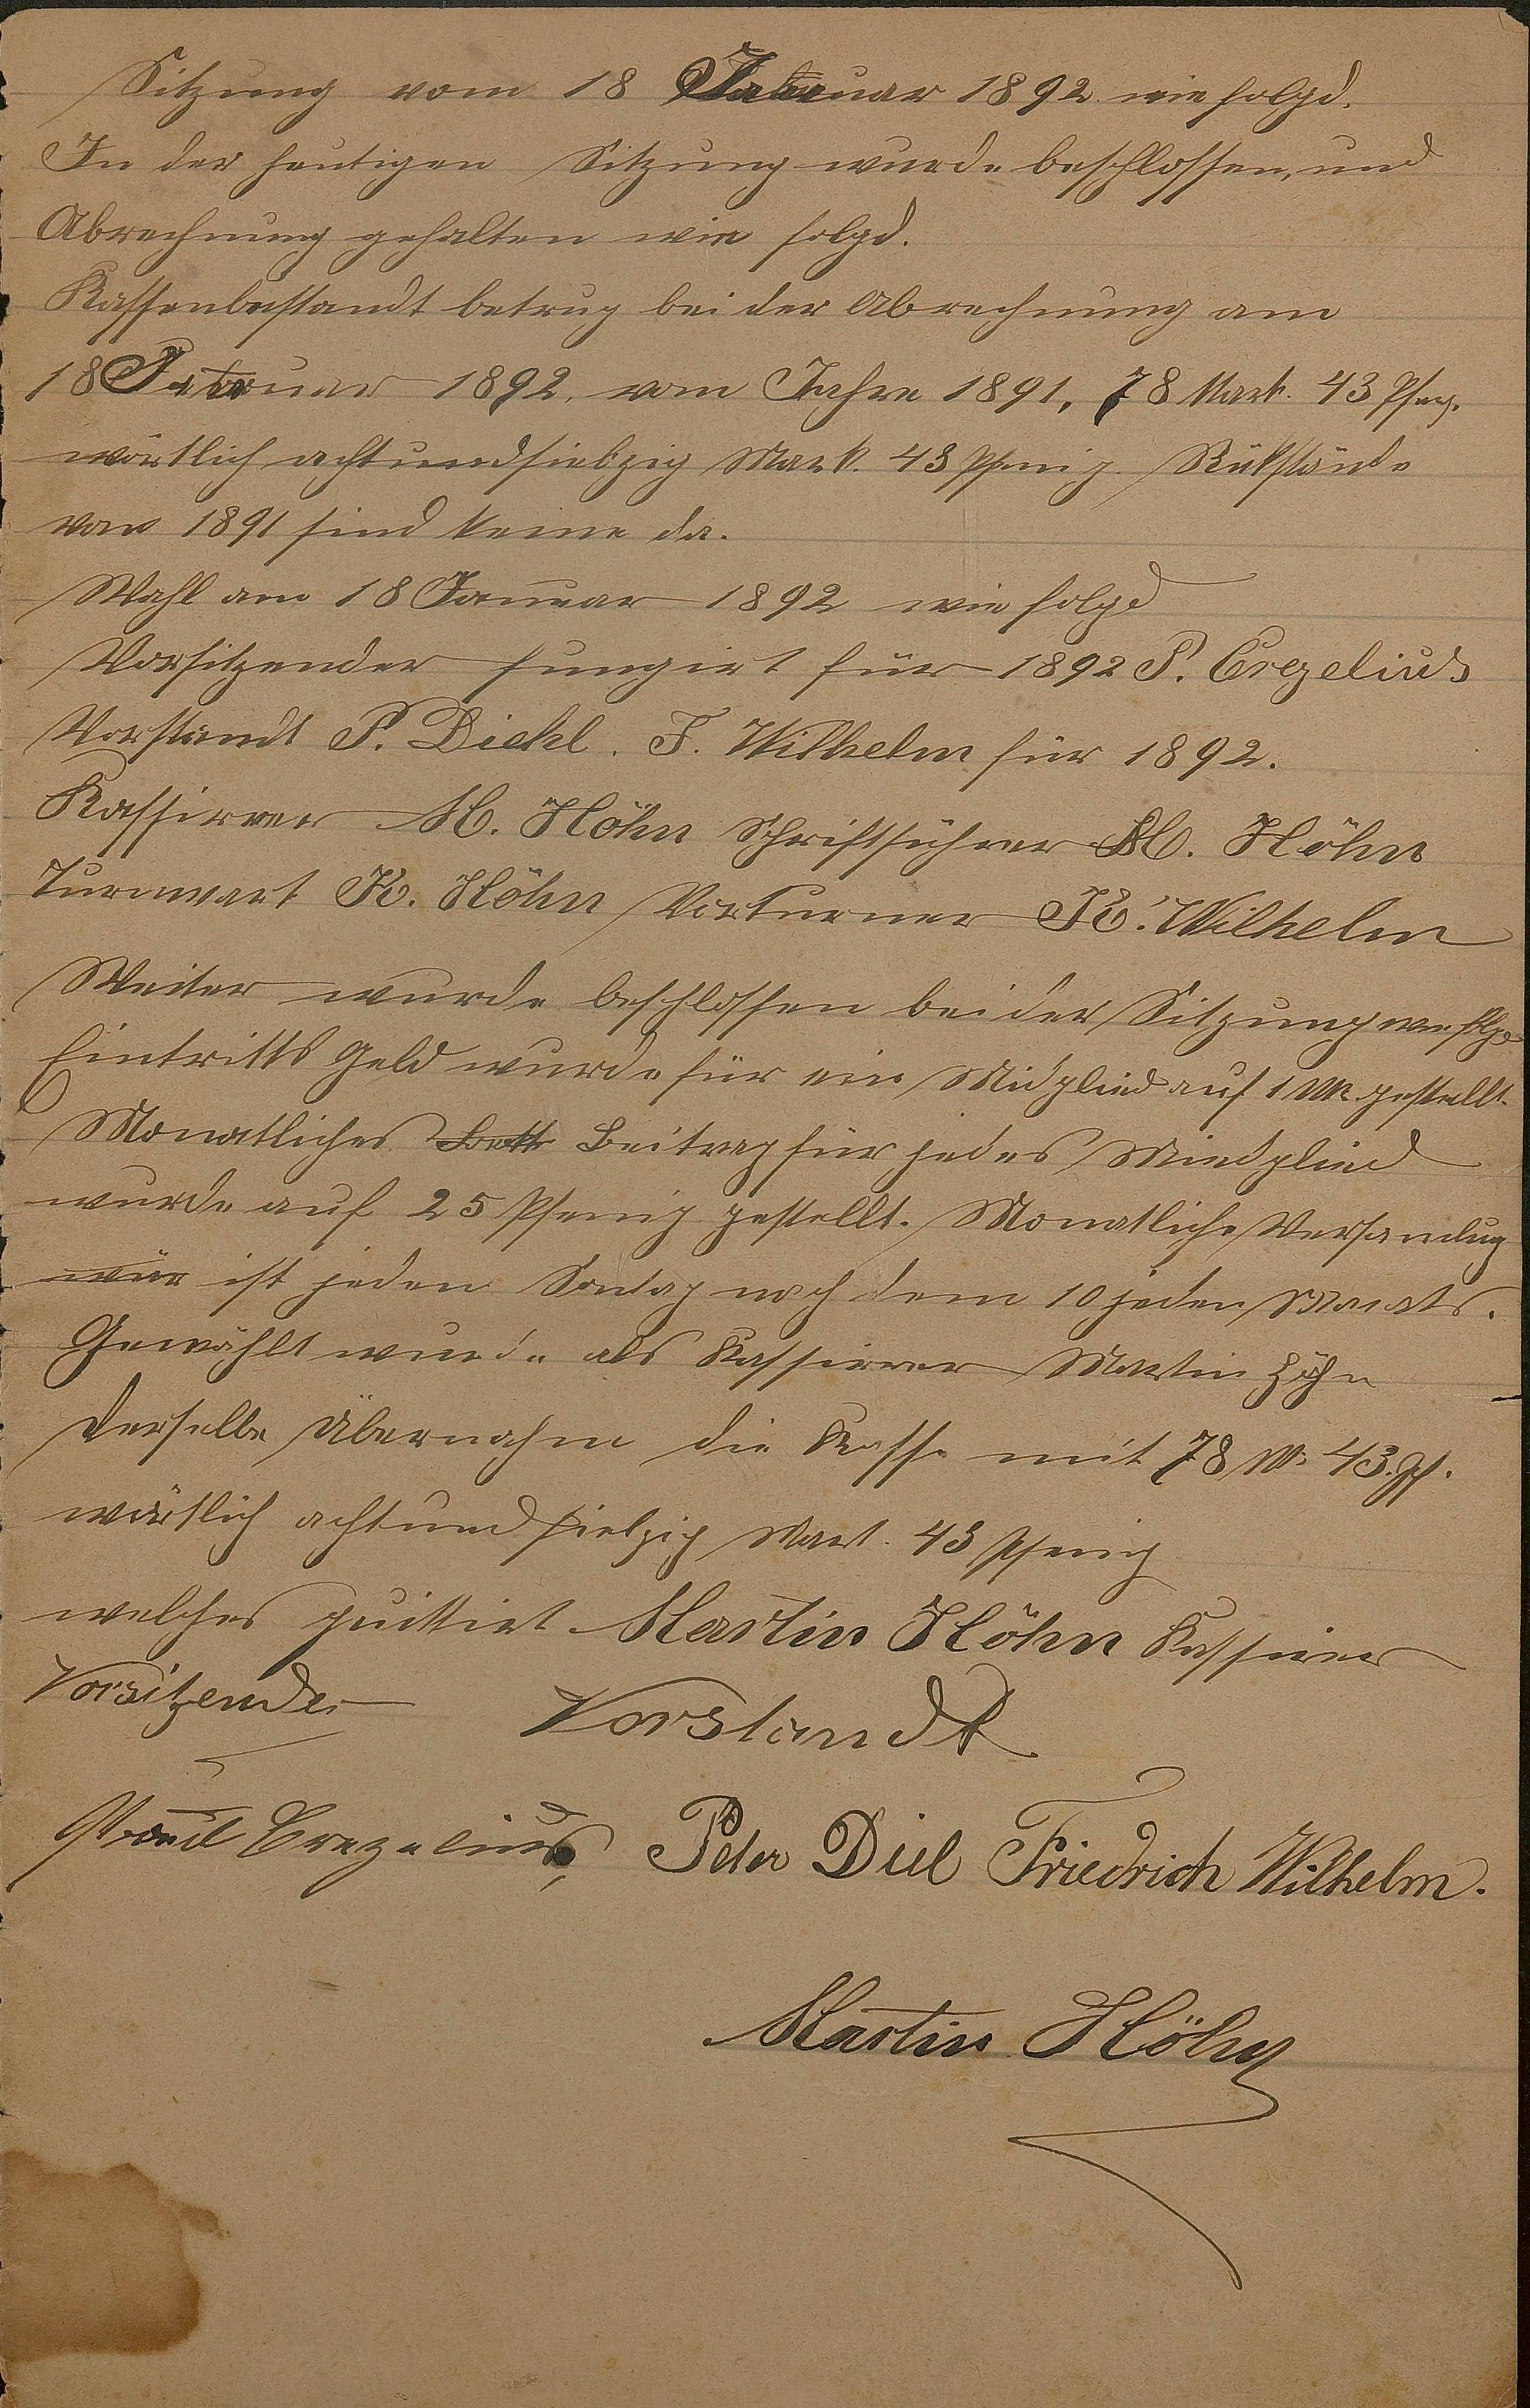 Sitzung vom 18 Januar 1892 wie folgd.
In der heutigen Sitzung wurde beschlossen, und
Abrechnung gehalten wie folgd.
Kassenbestandt betrug bei der Abrechnung am
18 Januar 1892. vom Jahre 1891, 78 Mark. 43 Pfeng.
wörtlich achtundsiebzig Mark. 43 Pfenig Rükstände
von 1891 sind keine da.
Wahl am 18 Januar 1892 wie folgd
Vorsitzender fungirt für 1892 P. Crezelius
Vorstandt P. Diehl. F. Wilhelm für 1892.
Kassirer M. Höhn Schriftführer M. Höhn
Turnwart K. Höhn Vorturner K. Wilhelm
Weiter wurde beschlossen bei der Sitzung wie folgd
Eintritts Geld wurde für ein Midglied auf 1 Mk gestellt.
Monatliches Beitrag für jedes Miedglied
wurde auf 25 Pfenig gestellt. Monatliche Versamlug
ist jeden Sontag nach dem 10 jeden Monats.
Gewählt wurde als Kassirer Martin Höhn
derselbe Übernahm die Kasse mit 78 M. 43. Pf.
wörtlich achtundsiebzig Mark. 43 Pfenig
welches quittirt Martin Höhn Kassirer
Vorsitzender Vorstandt
Crezelius, Peter Diel Friedrich Wilhelm.
Martin Höhn